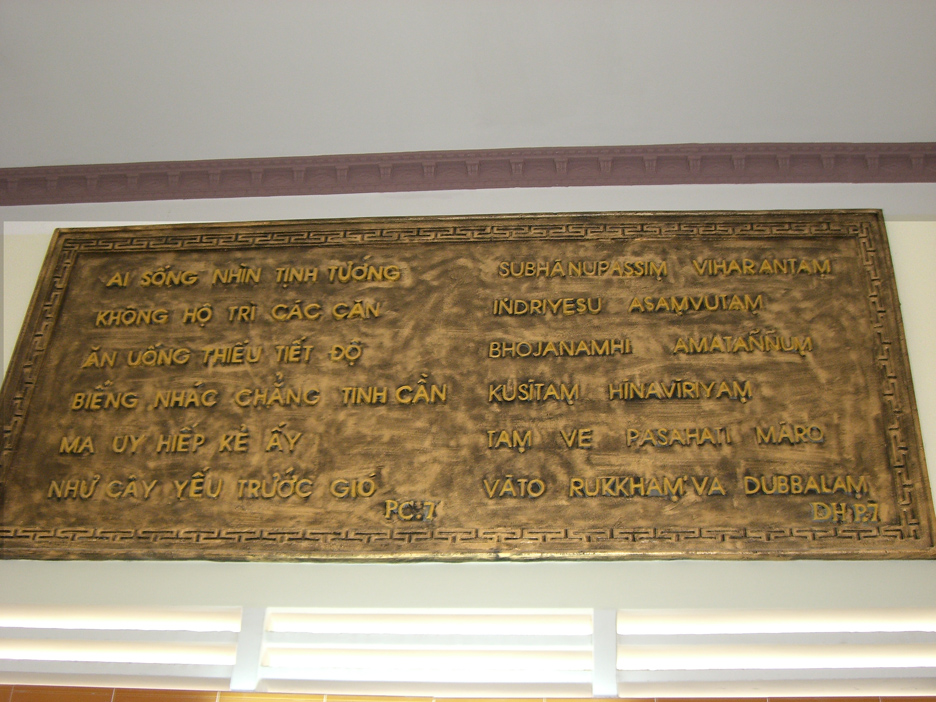 AI SỐNG NHÌN TỊNH TƯỚNG
KHÔNG HỘ TRÌ CÁC CĂN
ĂN UỐNG THIẾU TIẾT ĐỘ
BIẾNG NHÁC CHẲNG TINH CẦN
MA UY HIẾP KẺ ẤY
NHƯ CÂY YẾU TRƯỚC GIÓ
PC:7
SUBHĀNUPASSIṂ VIHARANTAṂ
INDRIYESU ASAṂVUTAṂ
BHOJANAMHI AMATAÑÑUṂ
KUSĪTAṂ HĪNAVĪRIYAṂ
TAṂ VE PASAHATI MĀRO
VĀTO RUKKHAṂ'VA DUBBALAṂ
DH.P.7